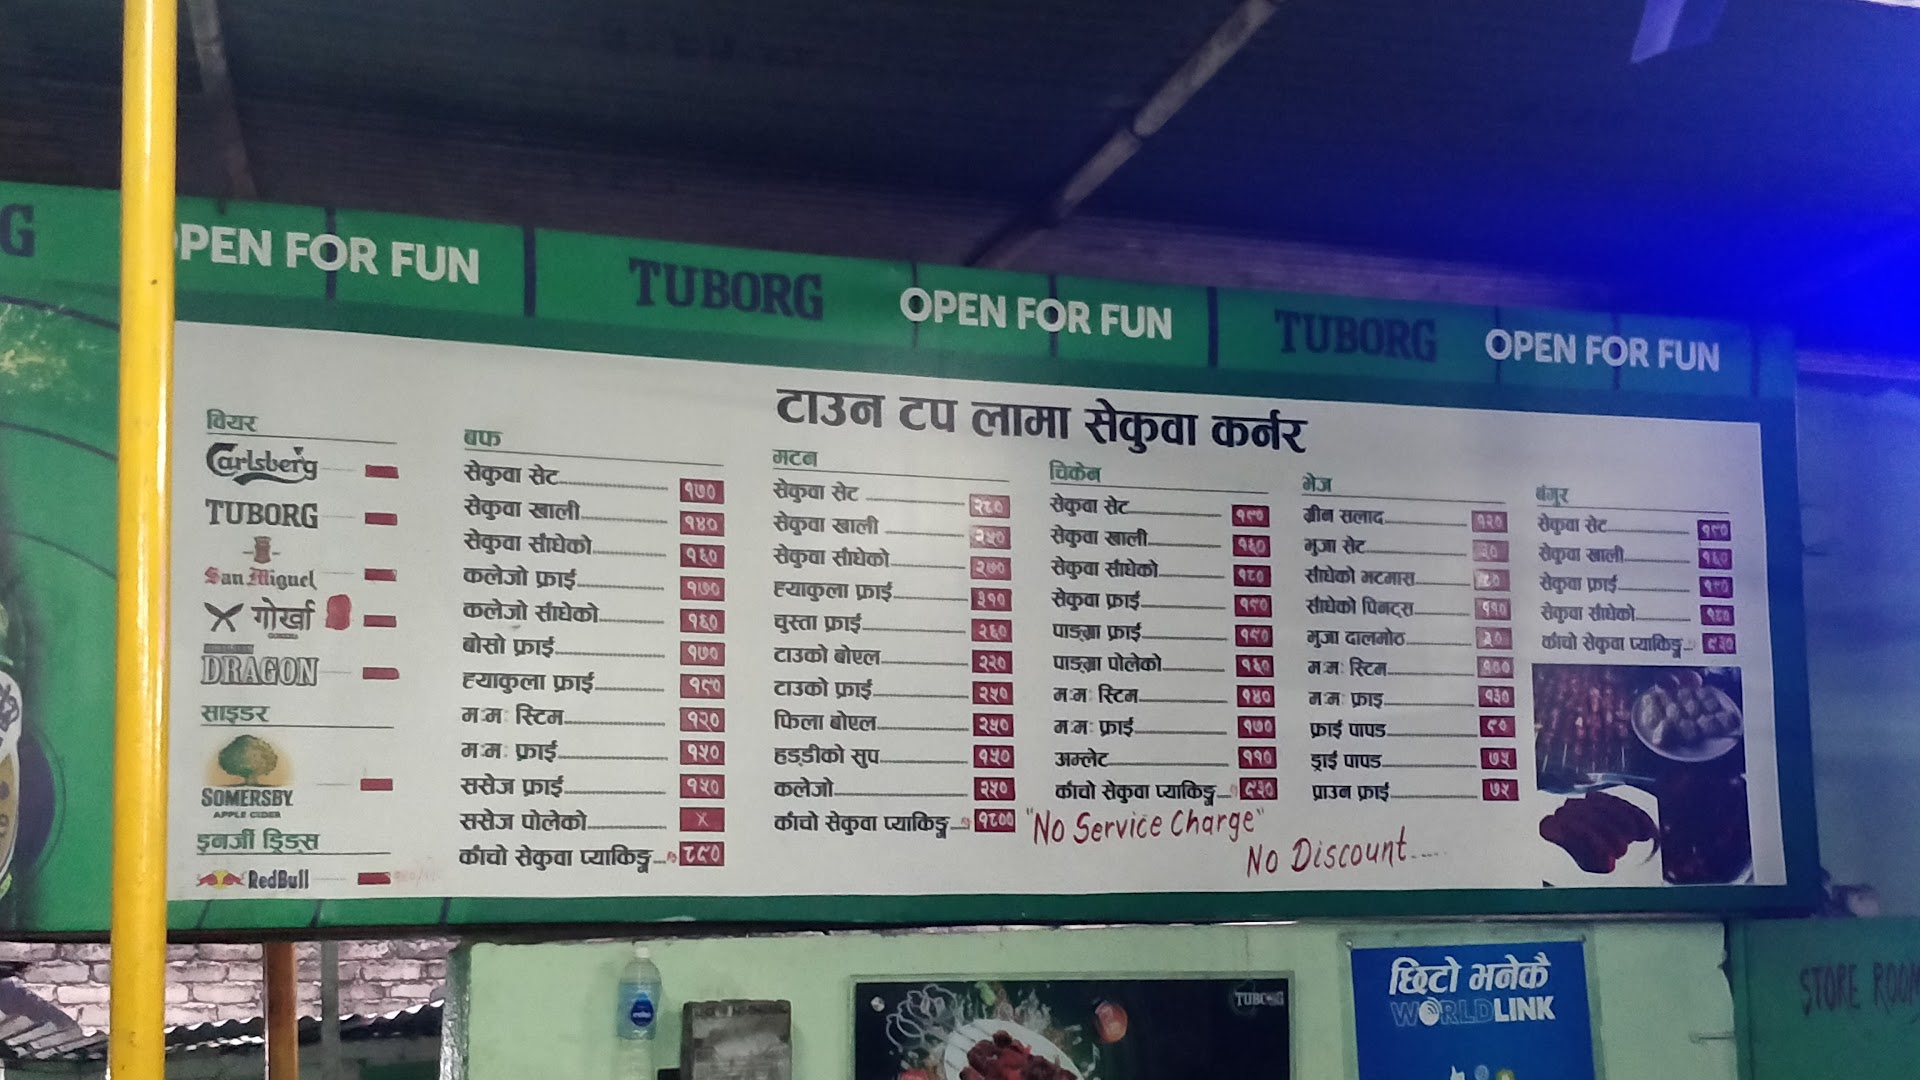 G
PEN FOR FUN
TUBORG
OPEN FOR FUN
TUBORG
OPEN FOR FUN
टाउन टप लामा सेकुवा कर्नर
वियर
Carlsberg
TUBORG
San Miguel
गोर्खा
GORKHA
DRAGON
साइडर
SOMERSBY
APPLE CIDER
इनर्जी ड्रिङ्स
RedBull
बफ
सेकुवा सेट १७०
सेकुवा खाली १४०
सेकुवा साँधेको १६०
कलेजो फ्राई १७०
कलेजो साँधेको १६०
बोसो फ्राई १७०
ह्याकुला फ्राई १९०
म:म: स्टिम १२०
म:म: फ्राई १५०
ससेज फ्राई १५०
ससेज पोलेको X
काँचो सेकुवा प्याकिङ्ग ८९०
मटन
सेकुवा सेट २८०
सेकुवा खाली २५०
सेकुवा साँधेको २७०
ह्याकुला फ्राई ३१०
चुस्ता फ्राई २६०
टाउको बोएल २२०
टाउको फ्राई २५०
फिला बोएल २५०
हड्डीको सुप १५०
कलेजो २५०
काँचो सेकुवा प्याकिङ्ग १८००
चिकेन
सेकुवा सेट १९०
सेकुवा खाली १६०
सेकुवा साँधेको १८०
सेकुवा फ्राई १९०
पाङ्ग्रा फ्राई १९०
पाङ्ग्रा पोलेको १६०
म:म: स्टिम १४०
म:म: फ्राई १७०
अम्लेट ११०
काँचो सेकुवा प्याकिङ्ग ९३०
भेज
ग्रीन सलाद १२०
भुजा सेट ३०
साँधेको भटमास
साँधेको पिनट्स ११०
भुजा दालमोठ ३०
म:म: स्टिम १००
म:म: फ्राइ १३०
फ्राई पापड ९०
ड्राई पापड ७५
प्राउन फ्राई ७५
बंगुर
सेकुवा सेट १९०
सेकुवा खाली १६०
सेकुवा फ्राई १९०
सेकुवा साँधेको १८०
काँचो सेकुवा प्याकिङ्ग ९३०
"No Service Charge"
No Discount....
TUBORG
छिटो भनेकै
WORLDLINK
STORE ROOM